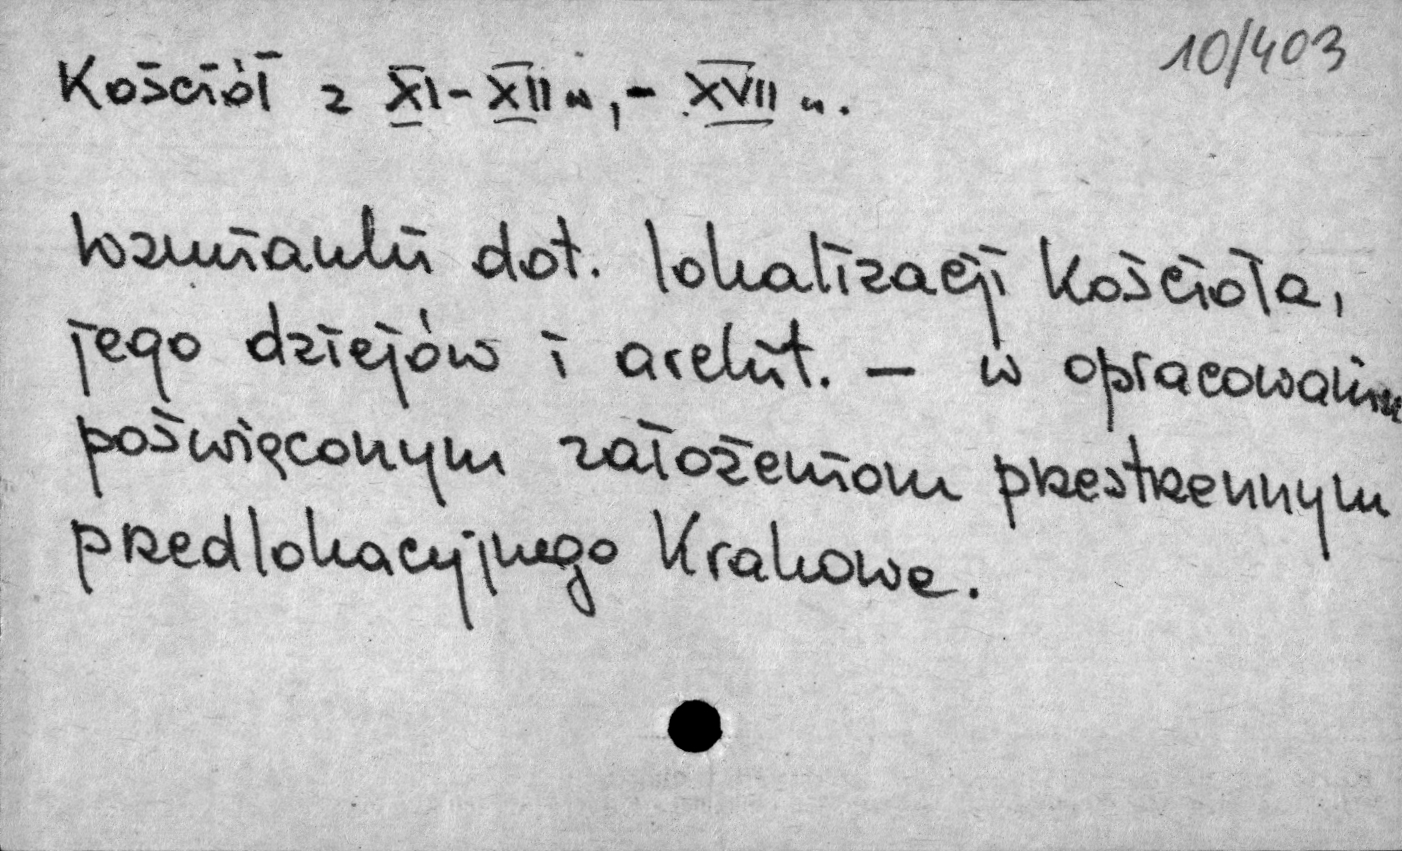 10/403
Kościół z XI-XII w, - XVII w.
Wzmianki dot. lokalizacji Kościoła,
jego dziejów i archit. — w opracowaniu
poświęconym założeniom przestrzennym
przedlokacyjnego Krakowa.